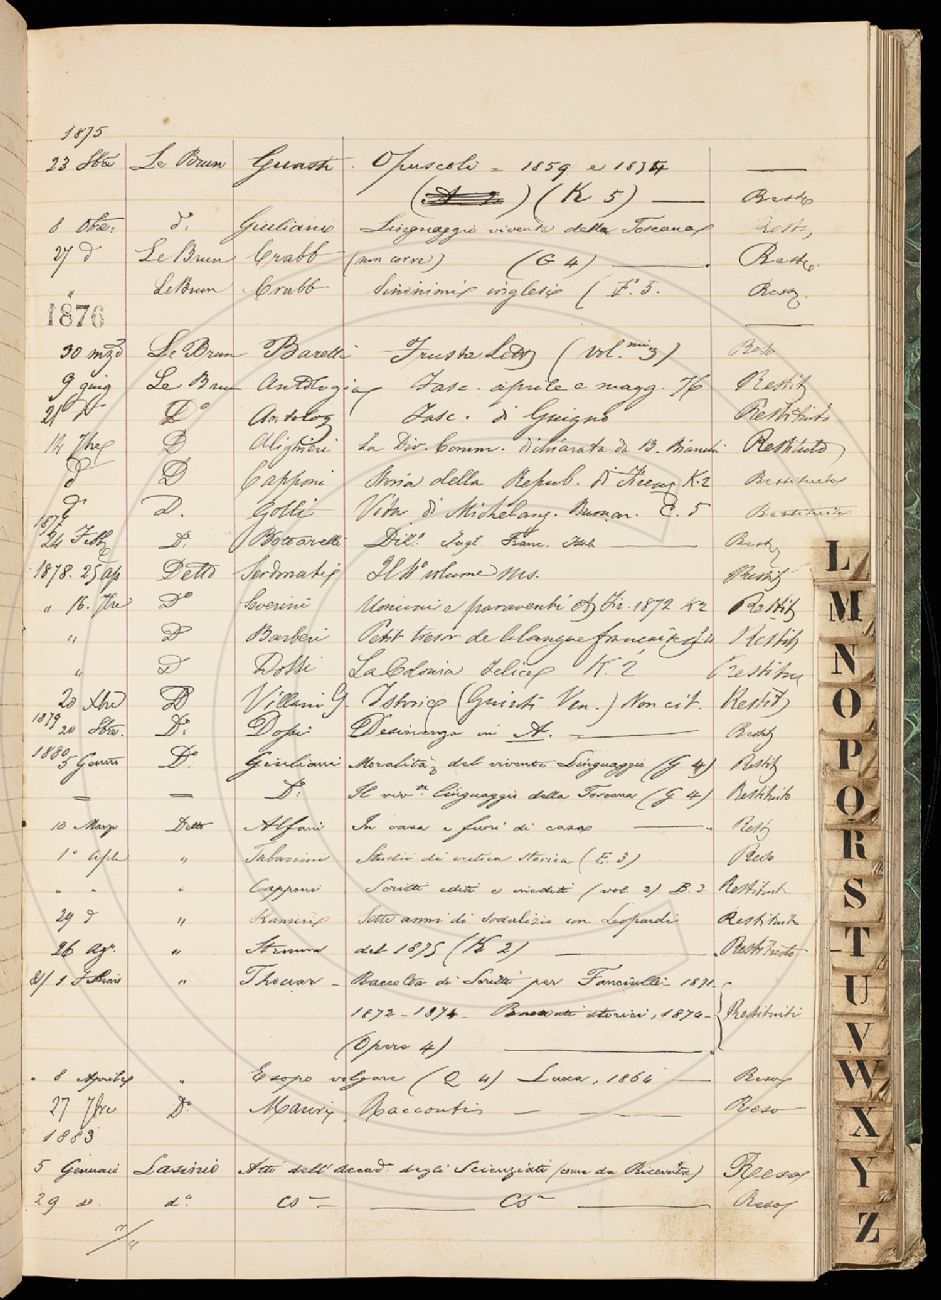 1875
23 Sbre Le Brun Guasti. Opuscoli - 1859 e 1874
(K 5) — Restit.
8 Obre: d.° Giuliani Linguaggio vivente della Toscana Restit.
27 d° Le Brun Crabb (non corre) (G 4) — Restit.
" Le Brun Crabb Sinonimi inglesi (F. 5. Restit.
1876
30 mzo Le Brun Baretti Frusta Lett. (vol. 3) Reso
9 giug Le Brun Antologia Fasc. aprile e magg. 76 Restit.
21 d° D° Antolog Fasc. di Giugno Restituito
14 7bre D Alighieri La Div. Comm. dichiarata da B. Bianchi Restituto
d° D Capponi Storia della Repub. di Firenze K.2 Restituito
d° D. Gotti Vita di Michelang. Buonar. E. 5 Restituito
1877
24 Febb D.° Bottarelli Diz.° Ingl. Franc. Ital — Restit.
1878. 25 ap Detto Serdonati Il 4° volume Ms. Restit.
" 16. 7bre D° Severini Uomini e paraventi K2 Restit.
" D° Barberi Petit tresor de la langue française Restit.
" D Dossi La Colonia Felice K. 2 Restitu
20 Xbre D Villani G Istorie (Giunti Ven.) Non cit. Restit.
1879
20 Sbre. D.° Dopi Desinenza in A. — Restit.
1880
5 Genn° D.° Giuliani Moralità del vivente Linguaggio (G 4) Restit.
— — D.° Il viv.te linguaggio della Toscana (G 4) Restituito
10 Marzo Detto Alfani In casa e fuori di casa — Restit.
1° Aple " Tabarrini Studii di critica storica (E. 3) Reso
" " " Capponi Scritti editi e inediti (vol. 2) B. 3 Restituito
29 d° " Ranieri Sette anni di sodalizio con Leopardi Restituito
26 ag. " Strenna del 1875 (K 2) — Restituito
81/ 1 Febbraio " Thouar - Raccolta di Scritti per Fanciulli - 1871 -
1872 - 1874 - Racconti storici, 1870 - Restituiti
(Opere 4) —
" 8 Aprile " Esopo volgare (Q 4) Lucca, 1864 — Reso
27 7bre D.° Mauri Racconti — — Reso
1883
5 Gennaio Lasinio Atti dell'Accad. degli Scienziati (come da Ricevuta) Reso
29 do. d°. Cs — Cs — Reso
L
M
N
O
P
Q
R
S
T
U
V
W
X
Y
Z